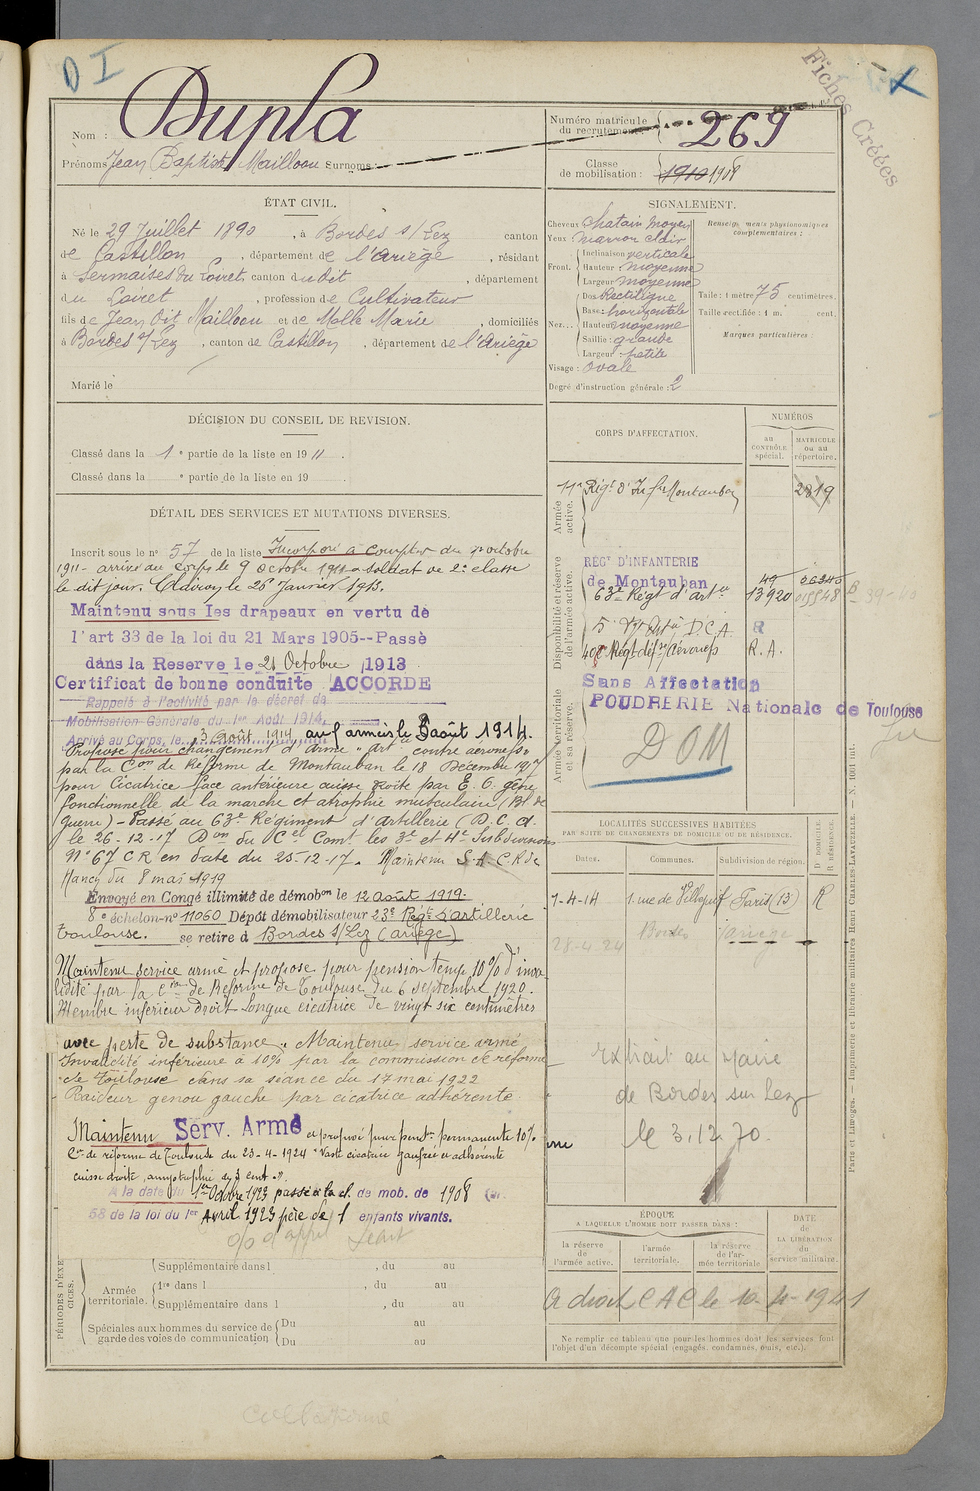 D I
Fiches Créées
Nom : Dupla
Prénoms Jean Baptiste Mailloeu Surnoms :
Numéro matricule du recrutement 269
Classe de mobilisation : 1910 1908
ÉTAT CIVIL.
Né le 29 Juillet 1890, à Bordes s/Lez canton
de Castillon, département de l'Ariège, résidant
à Sermaises du Loiret, canton dudit, département
du Loiret, profession de Cultivateur
fils de Jean Dit Mailloeu et de Molle Marie, domiciliés
à Bordes s/Lez, canton de Castillon, département de l'Ariège
Marié le
SIGNALEMENT.
Cheveux chatain moyen
Yeux marron clair
Front. Inclinaison verticale
Hauteur moyenne
Largeur moyenne
Nez... Dos rectiligne
Base horizontale
Hauteur moyenne
Saillie : grande
Largeur : petite
Visage : ovale
Degré d'instruction générale : 2
Renseignements physionomiques complémentaires :
Taille : 1 mètre 75 centimètres.
Taille rectifiée : 1 m. cent.
Marques particulières
DÉCISION DU CONSEIL DE REVISION.
Classé dans la 1e partie de la liste en 1911.
Classé dans la e partie de la liste en 19
DÉTAIL DES SERVICES ET MUTATIONS DIVERSES.
Inscrit sous le no 57 de la liste Incorporé à compter du octobre
1911 - arrivé au corps le 9 octobre 1911 soldat de 2e classe
le dit jour. Clairon le 26 Janvier 1913.
Maintenu sous les drapeaux en vertu de
l'art 33 de la loi du 21 Mars 1905--Passè
dans la Reserve le 21 Octobre 1913
Certificat de bonne conduite ACCORDE
Rappelé à l'activité par le décret de
Mobilisation Générale du 1er Août 1914,
Arrivé au Corps, le 3 août 1914 aux armées le 5 août 1914.
Proposé pour changement d'arme "Art contre aéronefs"
par la Con de Réforme de Montauban le 18 Décembre 1917
pour Cicatrice face antérieure cuisse droite par E. O. gêne
fonctionnelle de la marche et atrophie musculaire (Bl de
guerre) - Passé au 63e Régiment d'Artillerie (D. C. A.
le 26-12-17 Don du Cel Comt les 3e et 4e Subdivisions
No 67 C R en date du 25-12-17. Maintenu S. A C. R de
Nancy du 8 mai 1919
Envoyé en Congé illimité de démobon le 12 Août 1919.
8e échelon-no 11060 Dépôt démobilisateur 23e Régt d'artillerie
Toulouse. se retire à Bordes s/Lez (ariège)
Maintenu service armé et proposé pour pension temp 10% d'inva
lidité par la Con de Réforme de Toulouse du 6 septembre 1920.
Membre inférieur droit Longue cicatrice de vingt six centimètres
avec perte de substance. Maintenu service armé
Invalidité inférieure à 10% par la commission de réforme
de Toulouse dans sa séance du 17 mai 1922
Raideur genou gauche par cicatrice adhérente
Maintenu Serv. Armé et proposé pour pens. permanente 10%
Con de réforme de Toulouse du 23-4-1924 "Vaste cicatrice gaufrée et adhérente
cuisse droite, amyotrophie de 3 cent."
A la date du 1er Octobre 1923 passé à la cl. de mob. de 1908 (ar.
58 de la loi du 1er Avril 1923 père de 1 enfants vivants.
CORPS D'AFFECTATION.
NUMÉROS
au CONTRÔLE spécial.
MATRICULE ou au répertoire.
Armée active.
11e Régt d'Infrie Montauban 2819
Disponibilité et réserve de l'armée active.
RÉGt D'INFANTERIE
de Montauban
63e Régt d'Artie 13920
5 D.C.A.
Régt déf. c/Aéronefs R. A.
Armée territoriale et sa réserve.
Sans Affectation
POUDRERIE Nationale de Toulouse
DOM
LOCALITÉS SUCCESSIVES HABITÉES
PAR SUITE DE CHANGEMENTS DE DOMICILE OU DE RÉSIDENCE.
Dates. Communes. Subdivision de région. D DOMICILE. R RÉSIDENCE.
7-4-14 1. rue de Villejuif Paris (13) R
28-4-24 Bordes Ariège
Extrait au Maire
de Bordes sur Lez
le 3.12.70.
ÉPOQUE
A LAQUELLE L'HOMME DOIT PASSER DANS :
la réserve de l'armée active.
l'armée territoriale.
la réserve de l'armée territoriale.
DATE de LA LIBÉRATION du service militaire.
à droit C A C le 10-4-1941
Ne remplir ce tableau que pour les hommes dont les services font
l'objet d'un décompte spécial (engagés, condamnés, omis, etc.).
PÉRIODES D'EXERCICES.
Supplémentaire dans l , du au
Armée territoriale. 1re dans l , du au
Supplémentaire dans l , du au
Spéciales aux hommes du service de garde des voies de communication Du au
Du au
Paris et Limoges. — Imprimerie et librairie militaires Henri CHARLES-LAVAUZELLE. — N. 1001 int.